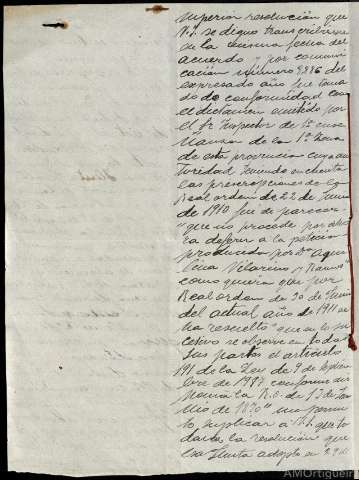 superior resolución que
V.S. se dignó transcribirme
de la misma fecha del
acuerdo y por comuni
cación número 9886 del
expresado año fue toma
do de conformidad con
el dictamen emitido por
el Sr. Inspector de 1ª ense
ñanza de la 1ª Zona
de esta provincia cuya au
toridad teniendo en cuenta
las prescripciones de la
Real orden de 22 de
1910 fue de parecer
"que no procede por ahora
la deferir a la petición
producida por Dª Aqui
lina Vilariño y Ramos"
como quiera que por
Real orden de 30 de Junio
del actual año de 1911 se
ha resuelto "en lo su
cesivo se observe en todas
sus partes el artículo
191 de la Ley de 9 de Septiem
bre de 1957 conforme dis
ponía la R.O. de 17 de Ju
nio de 1870" me permi
to suplicar a V.S. que to
da la resolución que
esa Junta adoptó a 29
AMOrtigueir